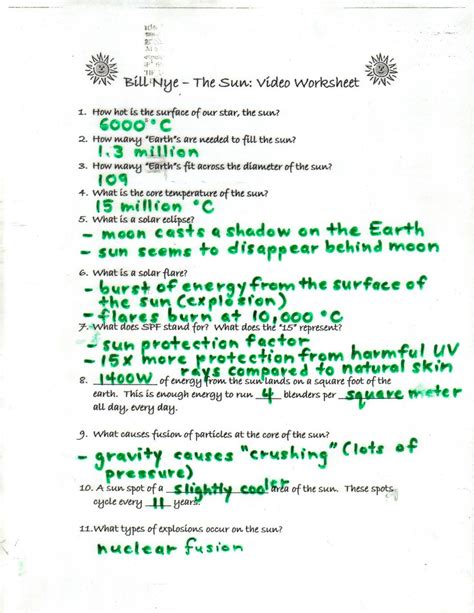 Bill Nye – The Sun: Video Worksheet
1. How hot is the surface of our star, the sun?
6000°C
2. How many "Earth"s are needed to fill the sun?
1.3 million
3. How many "Earth"s fit across the diameter of the sun?
109
4. What is the core temperature of the sun?
15 million °C
5. What is a solar eclipse?
- moon casts a shadow on the Earth
- sun seems to disappear behind moon
6. What is a solar flare?
- burst of energy from the surface of
the sun (explosion)
- flares burn at 10,000 °C
7. What does SPF stand for? What does the "15" represent?
- sun protection factor
- 15X more protection from harmful UV
rays compared to natural skin
8. 1400W of energy from the sun lands on a square foot of the
earth. This is enough energy to run 4 blenders per square meter
all day, every day.
9. What causes fusion of particles at the core of the sun?
- gravity causes "crushing" (lots of
pressure)
10. A sun spot of a slightly cooler area of the sun. These spots
cycle every 11 years.
11. What types of explosions occur on the sun?
nuclear fusion